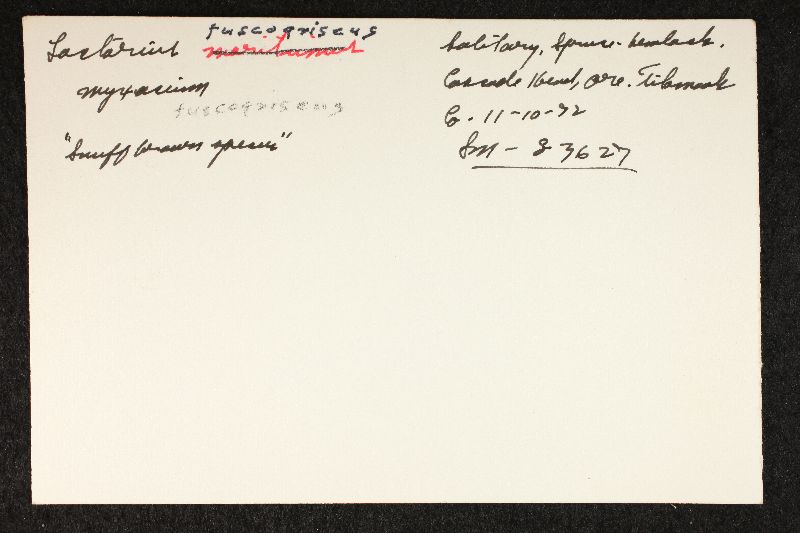 Lactarius fuscogriseus
myxacium
fuscogriseus
"Snuff brown species"
Solitary, Spruce-hemlock.
Cascade Head, Ore. Tillamook
Co. 11-10-72
Sm - 83627